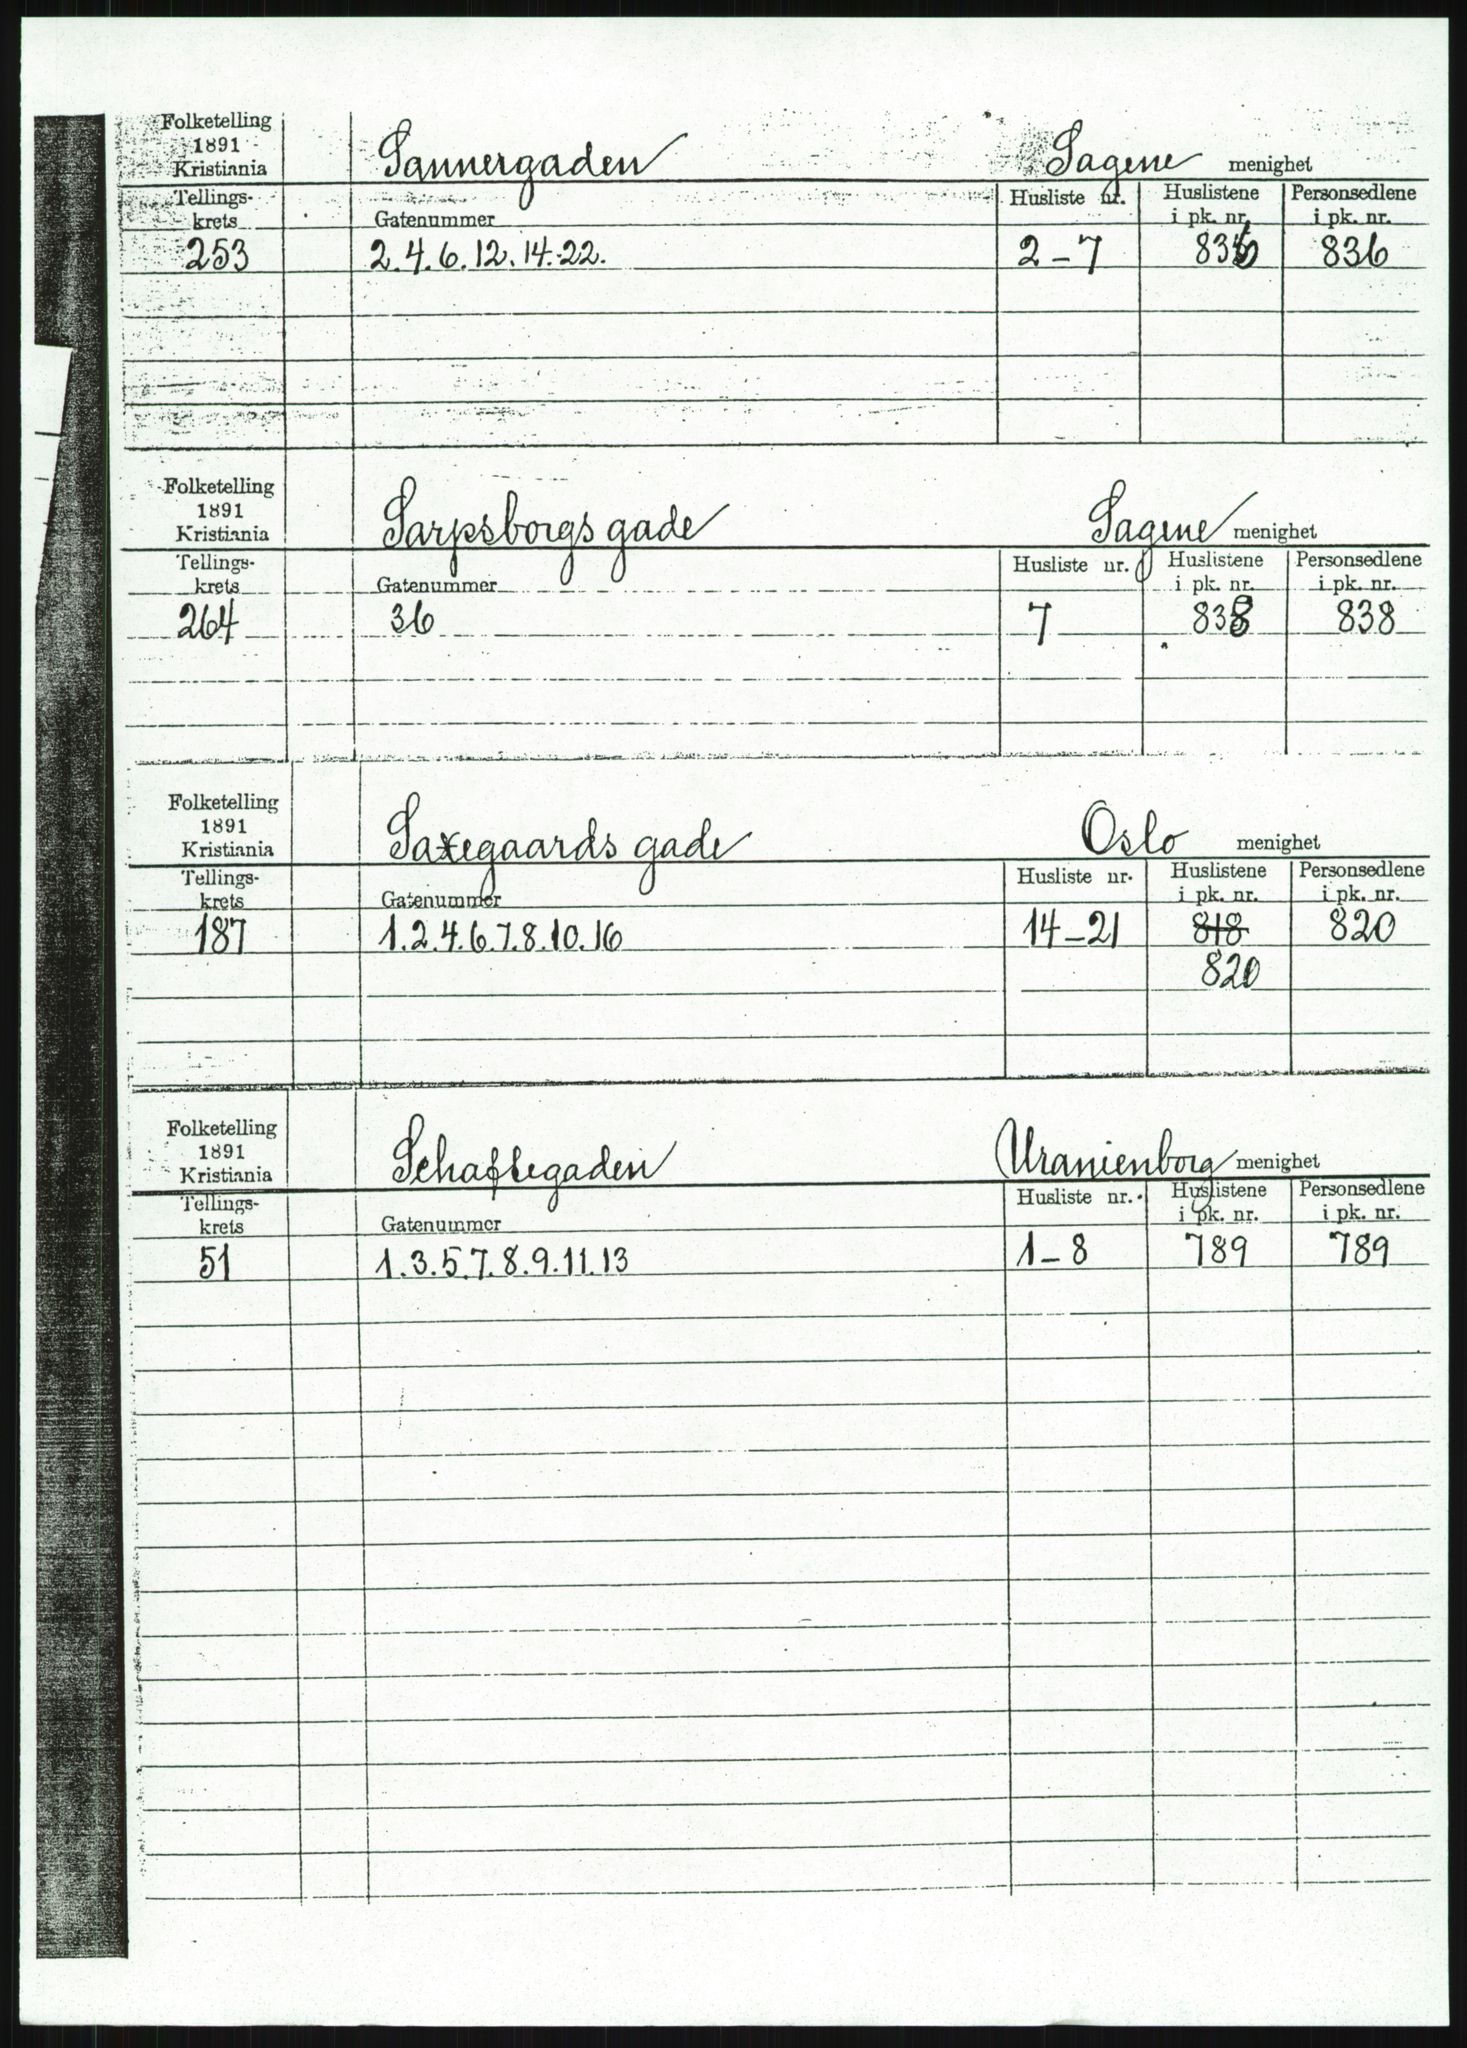 Folketelling
1891
Kristiania
Sannergaden
Sagene menighet
Tellings-
krets
Gatenummer
Husliste nr.
Huslistene
i pk. nr.
Personsedlene
i pk. nr.
253 2.4.6.12.14.22. 2-7 836 836
Folketelling
1891
Kristiania
Sarpsborgs gade
Sagene menighet
Tellings-
krets
Gatenummer
Husliste nr.
Huslistene
i pk. nr.
Personsedlene
i pk. nr.
264 36 7 838 838
Folketelling
1891
Kristiania
Saxegaards gade
Oslo menighet
Tellings-
krets
Gatenummer
Husliste nr.
Huslistene
i pk. nr.
Personsedlene
i pk. nr.
187 1.2.4.6.7.8.10.16 14-21 818 820
820
Folketelling
1891
Kristiania
Schaftegaden
Uranienborg menighet
Tellings-
krets
Gatenummer
Husliste nr.
Huslistene
i pk. nr.
Personsedlene
i pk. nr.
51 1.3.5.7.8.9.11.13 1-8 789 789